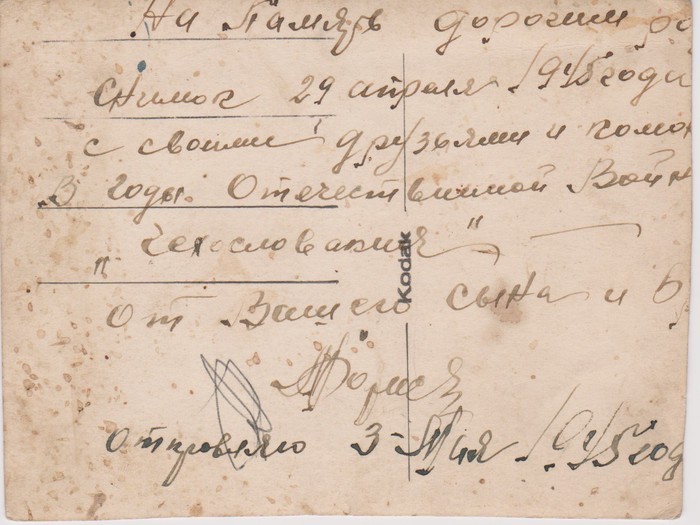 На Память дорогим
Снимок 29 апреля 1945 года
с своими друзьями и
В годы Отечественной Войн
"Чехословакия"
Kodak
От Вашего сына и Б
Отправляю 3-Мая 1945 год